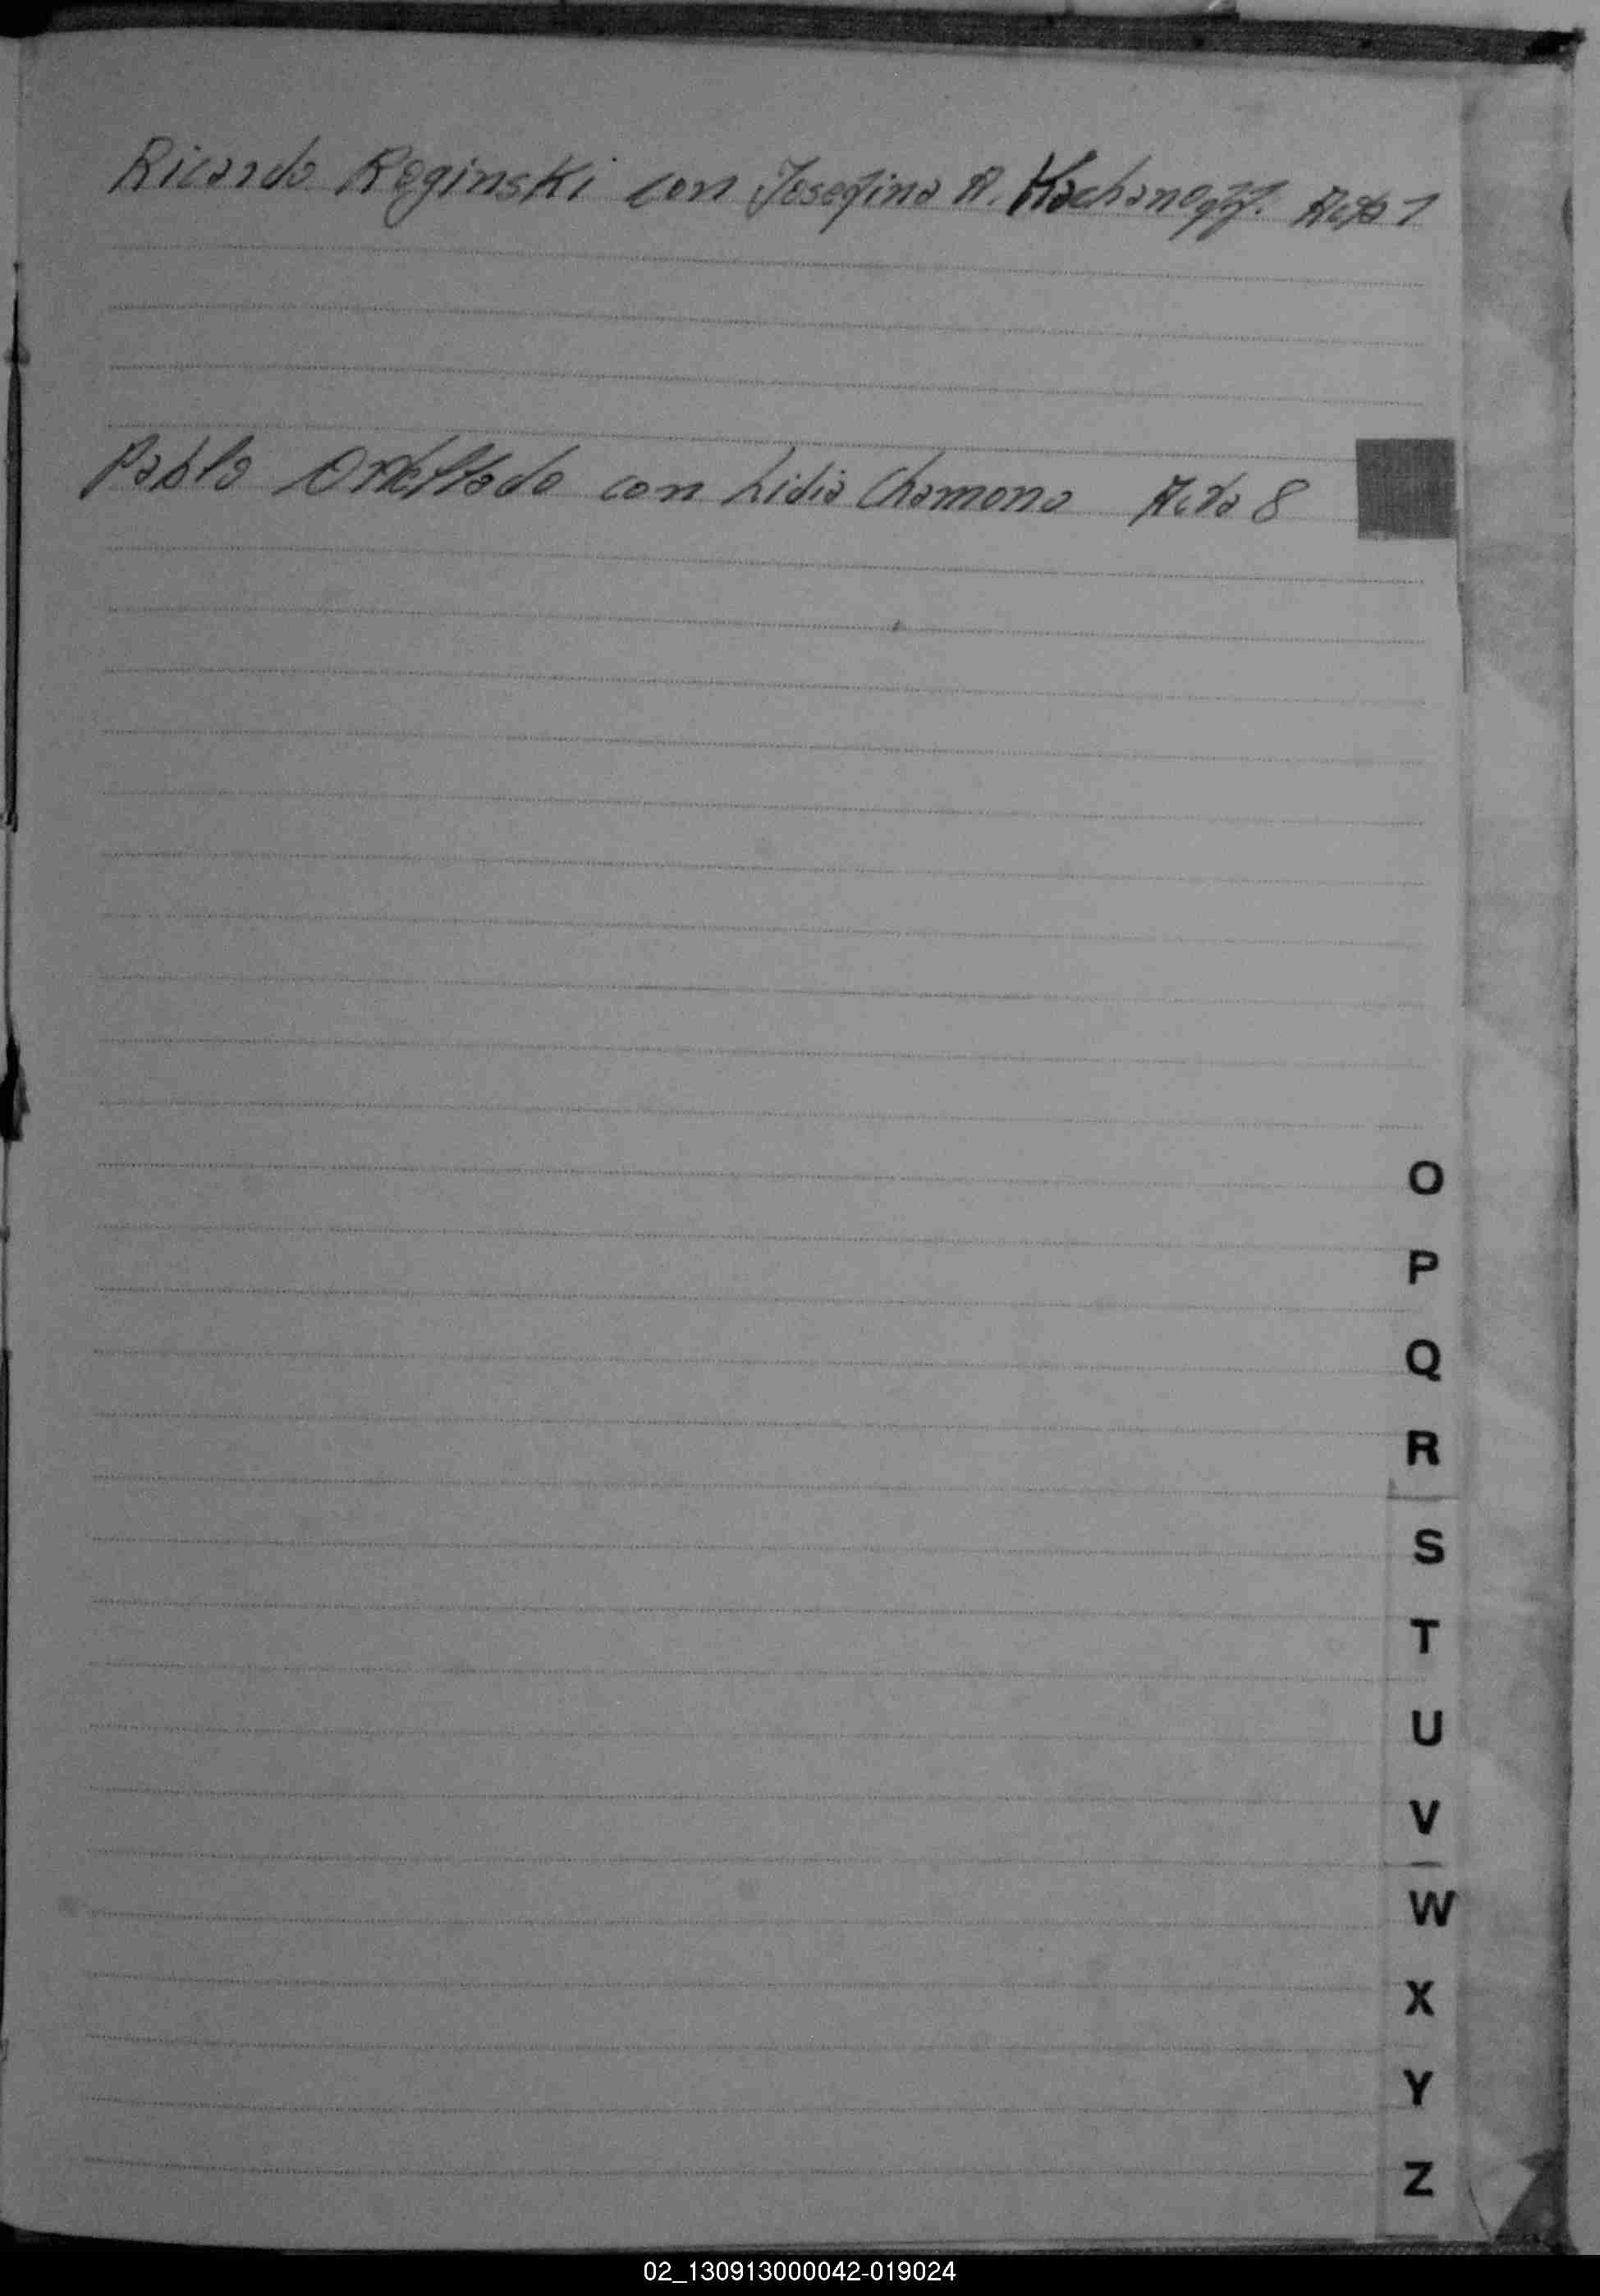 Ricardo Reginski con Josefina A. Acta 1
Pablo con Lidia Chamono Acta 8
O
P
Q
R
S
T
U
V
W
X
Y
Z
02_130913000042-019024